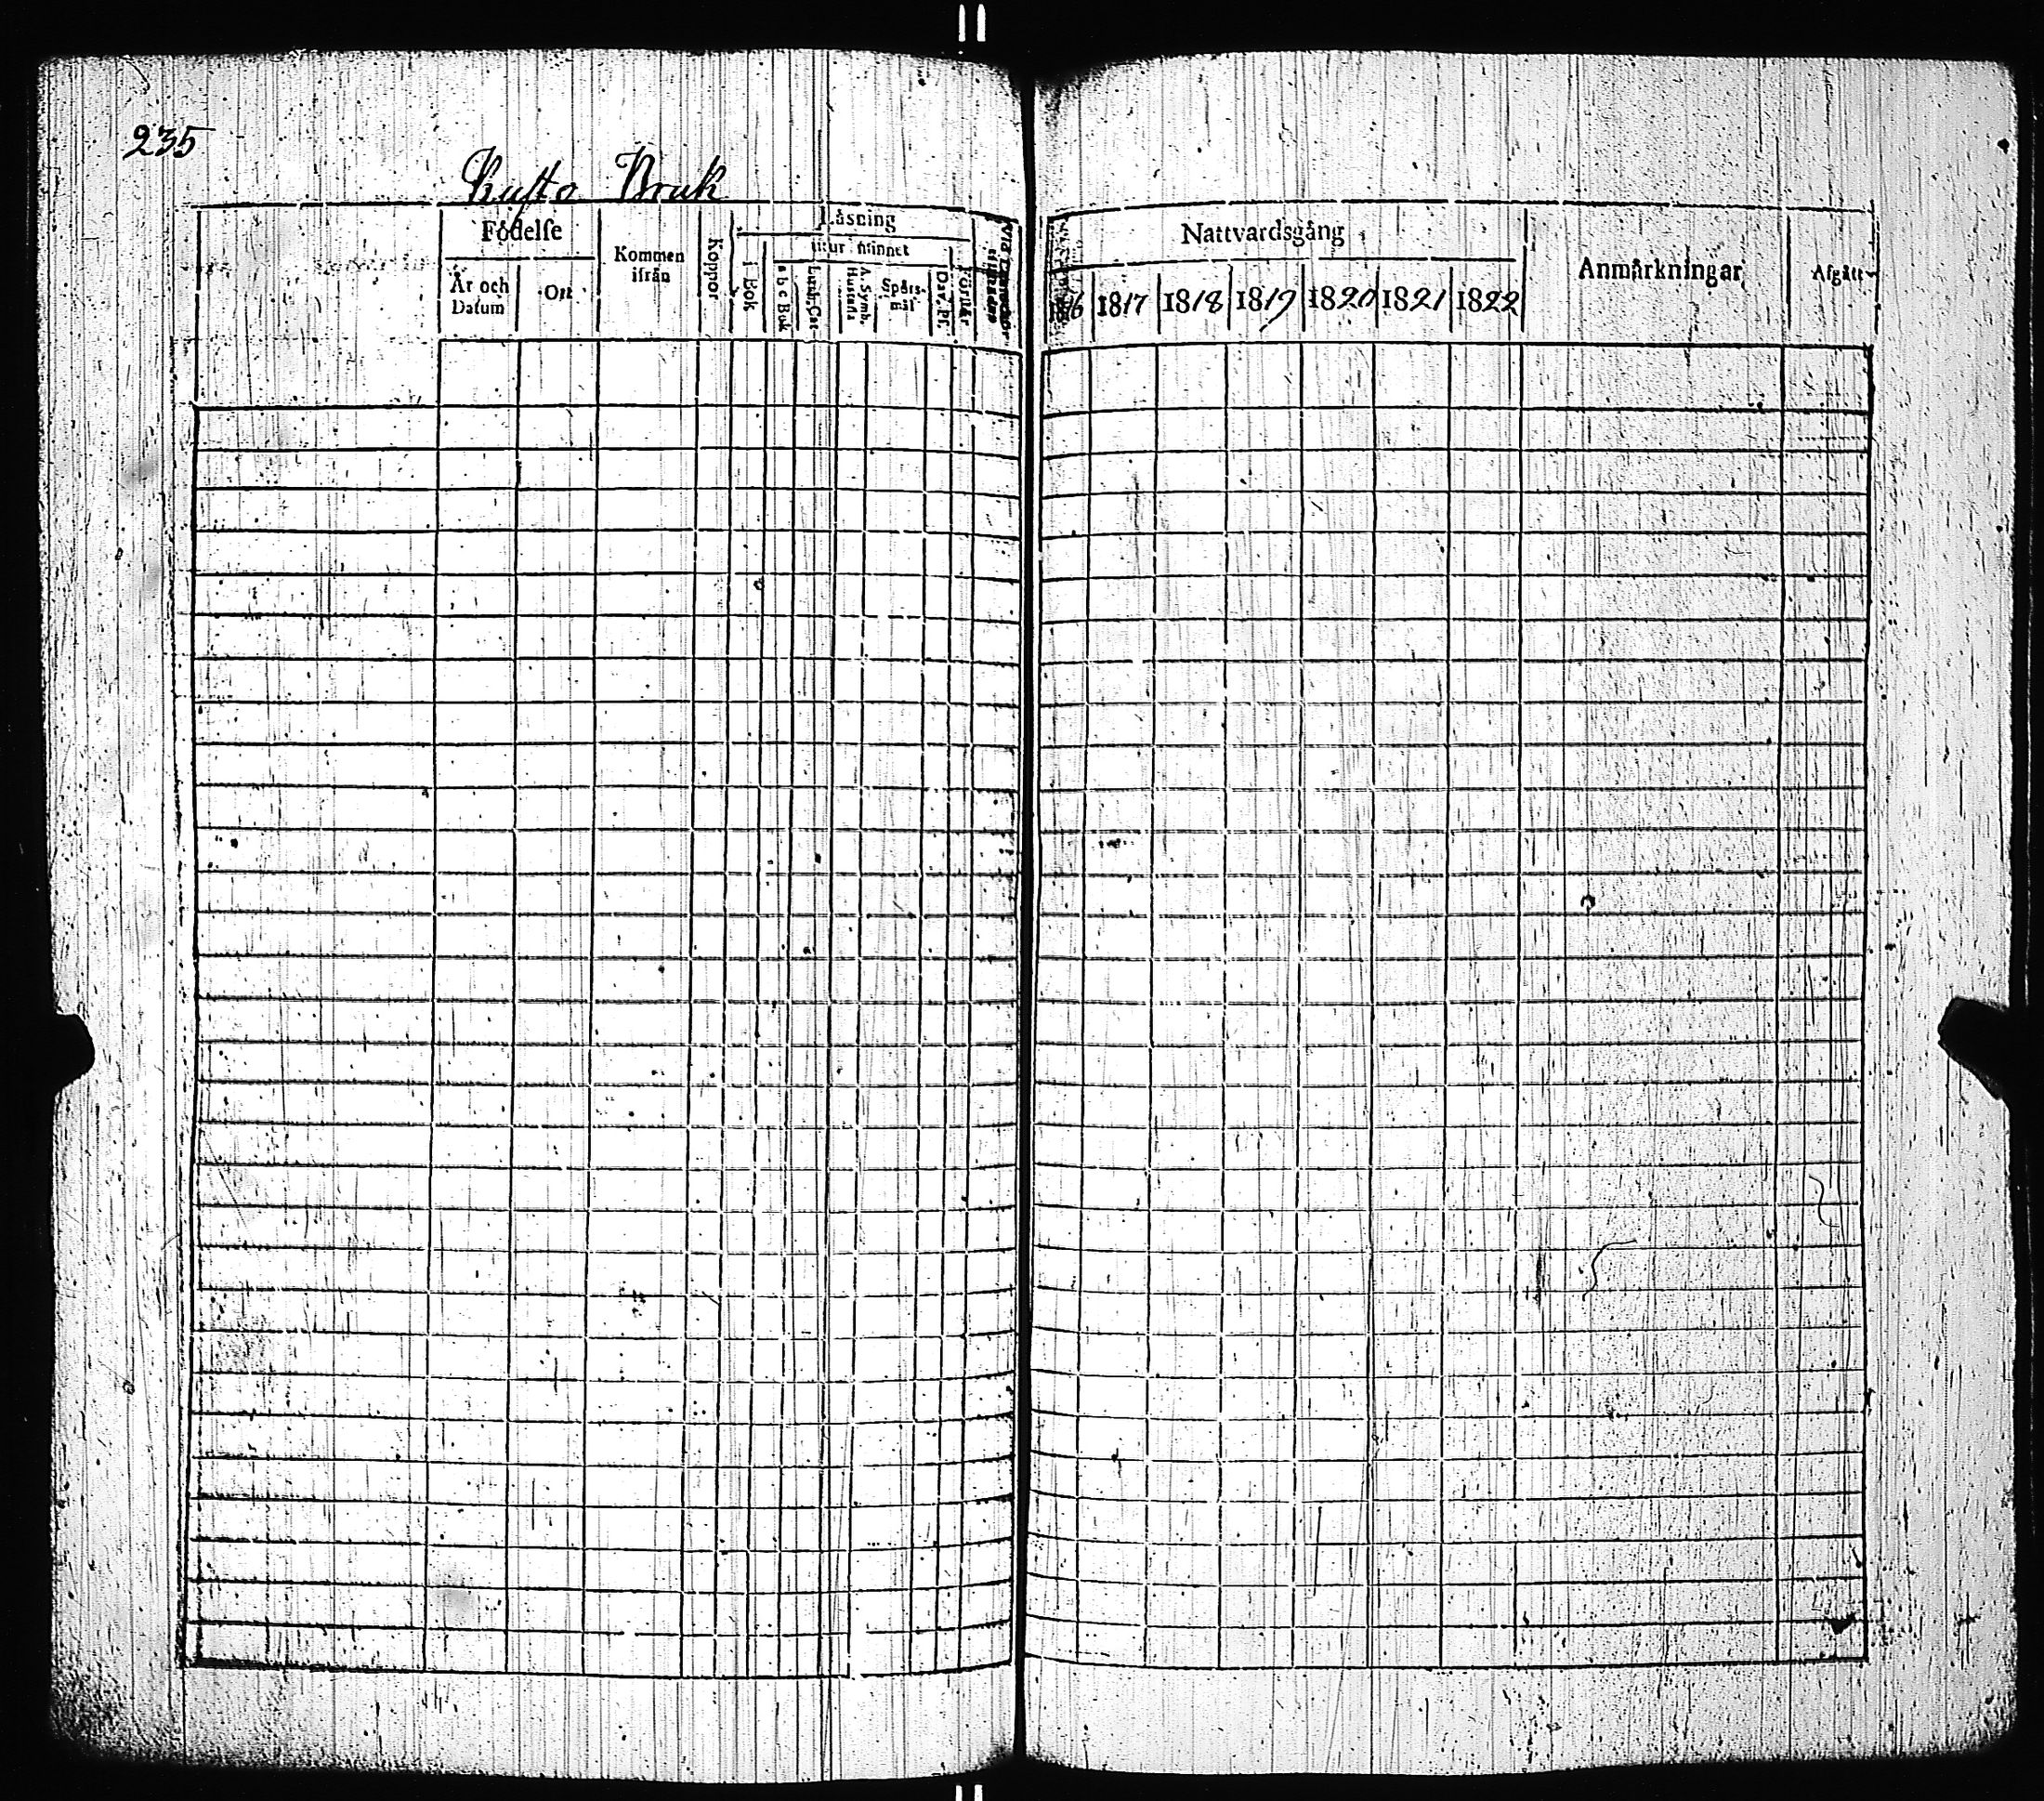 235
Lufta Bruk
Födelse
År och Datum
Ort
Kommen ifrån
Koppor
Läsning
i Bok
utur minnet
a b c Bok
Luth. Cat.
A. Symb. Hustafla
Spörs-mål
Dav. Ps.
Förstår
Nattvardsgång
1816 1817 1818 1819 1820 1821 1822
Anmärkningar
Afgått